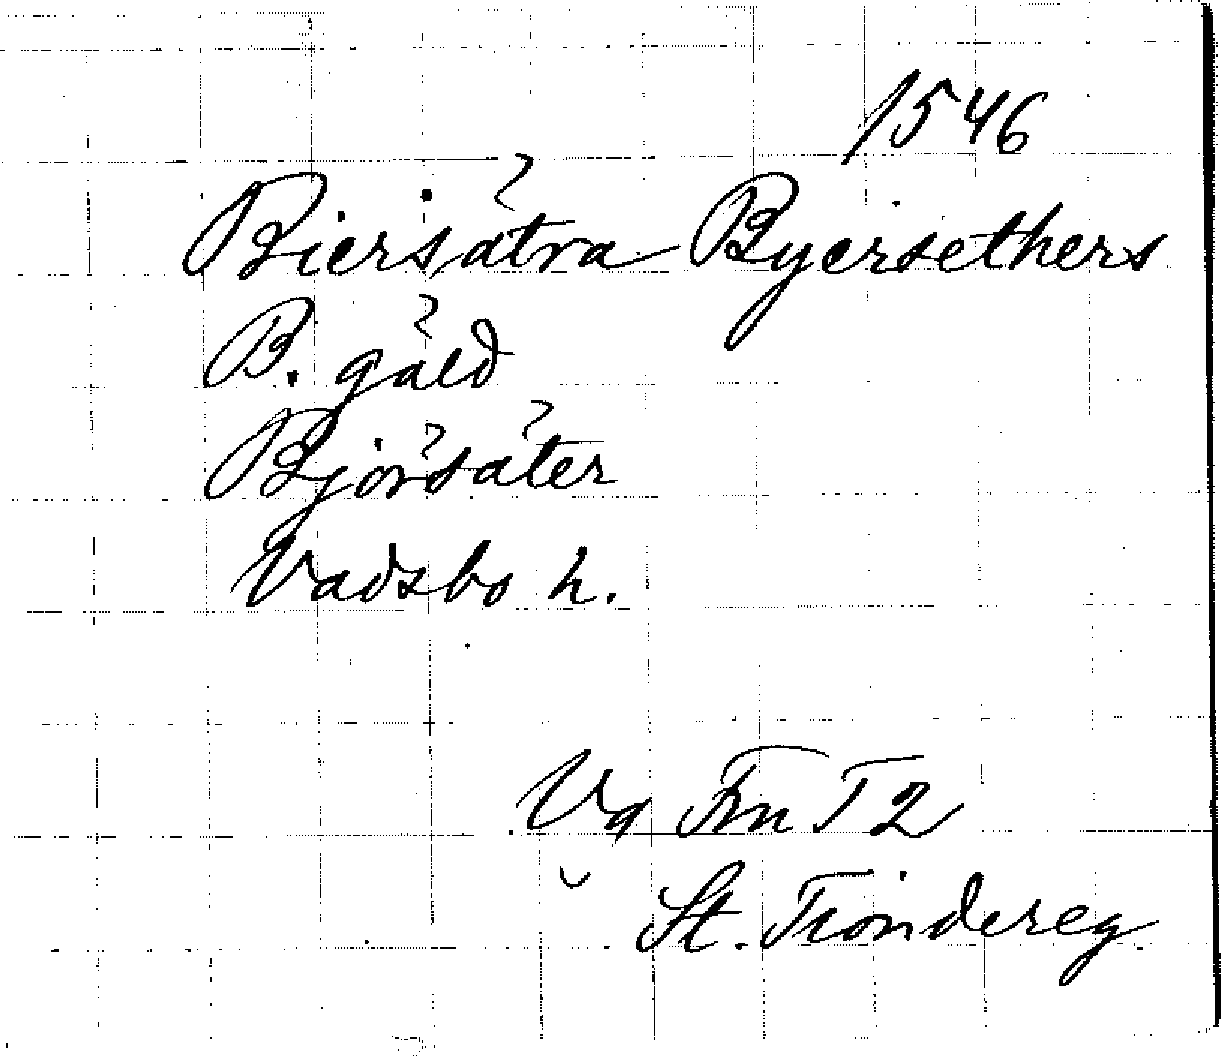 1546
Biersätra Byersethers
B. gäld
Björsäter
Vadsbo h.
Vg Fm T 2
St. Tiöndereg.